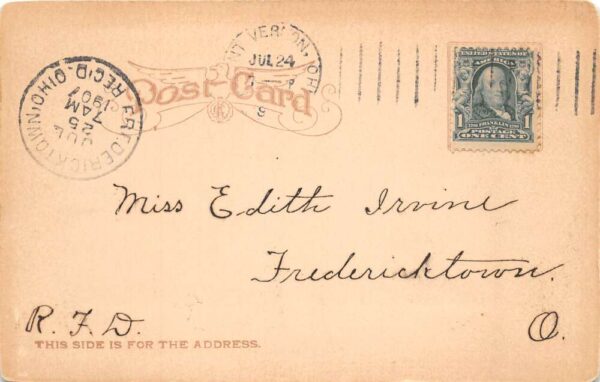 MOUNT VERNON, OHIO
JUL 24
9
FREDERICKTOWN, OHIO
REC'D.
JUL
25
7AM
1907
Post Card
UNITED STATES OF
AMERICA
1 FRANKLIN 1
POSTAGE
ONE CENT
Miss Edith Irvine
Fredericktown.
R. F. D. O.
THIS SIDE IS FOR THE ADDRESS.